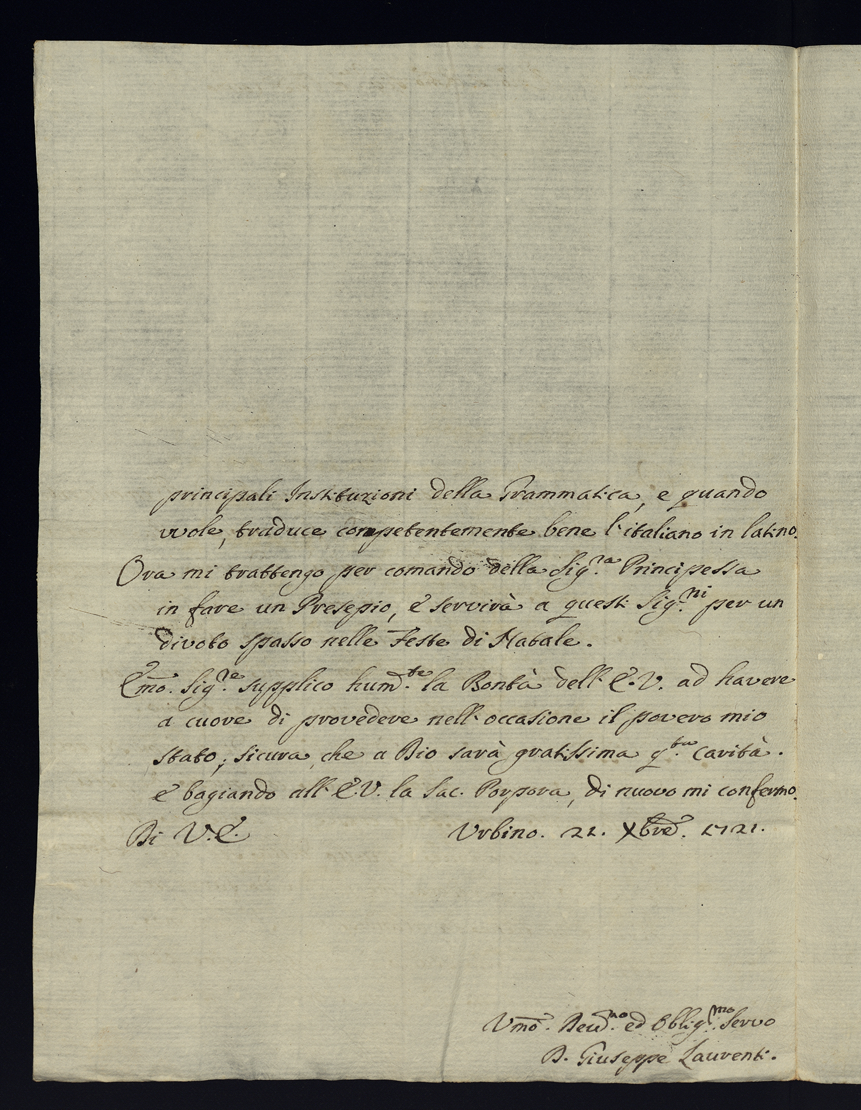 principali Instituzioni della Grammatica, e quando
vuole, traduce competentemente bene l'italiano in latino.
Ora mi trattengo per comando della Sig.ra Principessa
in fare un Presepio, e servirà a questi Sig.ni per un
divoto spasso nelle Feste di Natale.
Emo. Sig.re supplico hum.te la Bontà dell'E.V. ad havere
a cuore di provedere nell'occasione il povero mio
stato; sicura, che a Dio sarà gratissima q.ta carità.
e bagiando all'E.V. la Sac. Porpora, di nuovo mi confermo.
Di V.E. Urbino. 21. Xbre. 1721.
Vmo. Dev.mo ed Obblig.mo Servo
D. Giuseppe Laurenti.